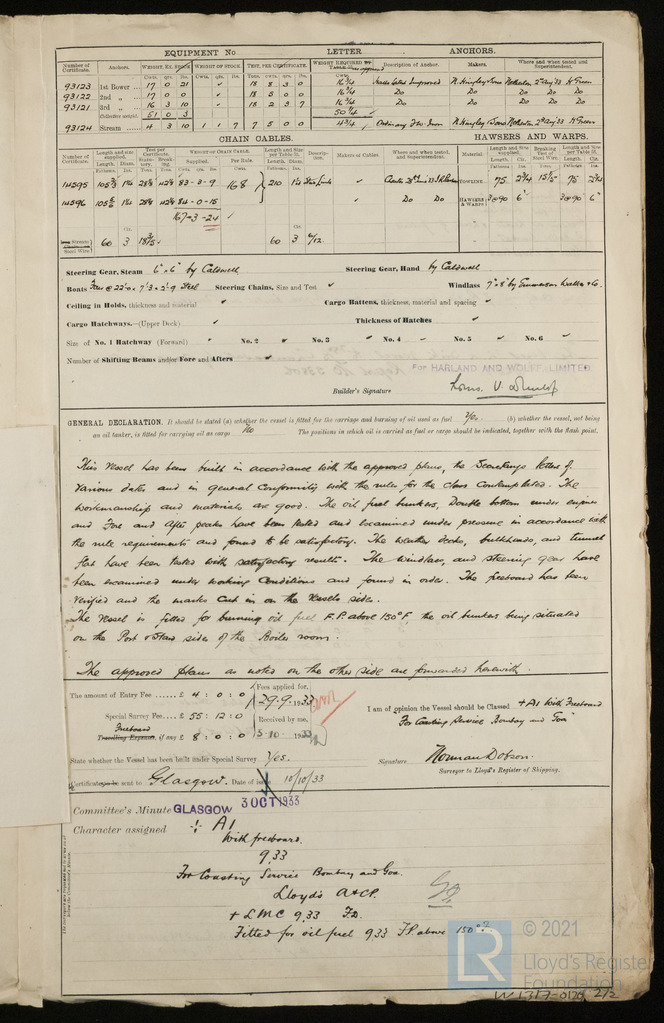 EQUIPMENT No LETTER ANCHORS.
Number of Certificate. Anchors. WEIGHT, EX. STOCK WEIGHT OF STOCK. TEST, PER CERTIFICATE. WEIGHT REQUIRED BY Description of Anchor. Makers. Where and when tested and Superintendent.
Cwts. qrs. lbs. Cwts. qrs. lbs. Tons. cwts. qrs. lbs. Cwts.
93123 1st Bower ... 17 0 21 ✓ 18 8 3 0 16 3/4 Improved N. Hingley & Sons Netherton 2nd Aug 33 H Green
93122 2nd „ 17 0 0 ✓ 18 5 0 0 16 3/4 Do Do Do Do Do
93121 3rd „ 16 3 10 ✓ 18 2 3 7 16 3/4 Do Do Do Do Do
Collective weight 51 0 3 50 1/4 ✓
93124 Stream ... 4 3 10 1 1 7 7 5 0 0 4 3/4 ✓ Ordinary N. Hingley & Sons Netherton 2nd Aug 33 H Green
CHAIN CABLES. HAWSERS AND WARPS.
Number of Certificate. Length and size supplied. Test per Certificate. WEIGHT OF CHAIN CABLE. Length and Size per Table 53. Description. Makers of Cables Where and when tested, and Superintendent. Material Length and Size supplied. Breaking Test of Steel Wire. Length and Size per Table 53.
Length. Diam. Statutory. Breaking. Supplied. Per Rule. Length. Diam. Length. Cir. Length. Cir.
Fathoms. Ins. Tons. Tons. Cwts. Fathoms. Ins. Fathoms. Ins. Tons. Fathoms. Ins.
14595 83-3-9 168 210 Stud Link ✓ TOWLINE 75 2 3/4 75 2 3/4
14596 84-0-15 ✓ Do Do HAWSERS & WARPS 3@90 6" 3@90 6"
167-3-24 ✓
Stream Steel Wire 60 3 60 3 6/12
Steering Gear, Steam 6" x 6" by Caldwell Steering Gear, Hand by Caldwell
Boats Four @ 22'0 x 7'3 x 2'9 Steel Steering Chains, Size and Test ✓ Windlass 7" x 8" by Emmerson Walker & Co.
Ceiling in Holds, thickness and material ✓ Cargo Battens, thickness, material and spacing ✓
Cargo Hatchways.—(Upper Deck) ✓ Thickness of Hatches ✓
Size of No. 1 Hatchway (Forward) ✓ No. 2 ✓ No. 3 ✓ No. 4 ✓ No. 5 ✓ No. 6 ✓
Number of Shifting Beams and/or Fore and Afters ✓
FOR HARLAND AND WOLFF, LIMITED
Builder's Signature
GENERAL DECLARATION. It should be stated (a) whether the vessel is fitted for the carriage and burning of oil used as fuel Yes. (b) whether the vessel, not being
an oil tanker, is fitted for carrying oil as cargo No The positions in which oil is carried as fuel or cargo should be indicated, together with the flash point.
This vessel has been built in accordance with the approved plans, the Secretary's letters of
various dates and in general conformity with the rules for the class contemplated. The
workmanship and materials are good. The oil fuel bunkers, Double bottom under engines
and Fore and After peaks have been tested and examined under pressure in accordance with
the rule requirements and found to be satisfactory. The weather decks, bulkheads, and tunnel
flat have been tested with satisfactory results. The windlass, and steering gear have
been examined under working conditions and found in order. The freeboard has been
verified and the marks cut in on the vessels sides.
The vessel is fitted for burning oil fuel F.P. above 150°F, the oil bunkers being situated
on the Port & Starb sides of the Boiler room.
The approved plans as noted on the other side are forwarded herewith.
The amount of Entry Fee ..... £ 4 : 0 : 0 Fees applied for, 29.9.1933
Special Survey Fee .... £ 55 : 12 : 0 Received by me,
Freeboard
Travelling Expenses, if any £ 8 : 0 : 0 5.10.1933
I am of opinion the Vessel should be Classed +A1 With Freeboard
For Coasting Service Bombay and Goa
State whether the Vessel has been built under Special Survey Yes.
Signature Norman Dobson
Surveyor to Lloyd's Register of Shipping.
Certificate to be sent to Glasgow. Date of issue 10/10/33
Committee's Minute GLASGOW 3 OCT 1933
Character assigned +A1
With freeboard.
9.33
For Coasting Service Bombay and Goa.
Lloyd's A&CP.
+ LMC 9.33 F.D.
Fitted for oil fuel 9.33 F.P. above 150°F
© 2021
Lloyd's Register
Foundation
2/2